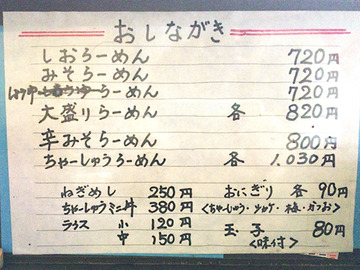 おしながき
しおらーめん 720円
みそらーめん 720円
しょうゆらーめん 720円
大盛りらーめん 各 820円
辛みそらーめん 800円
ちゃーしゅうらーめん 各 1,030円
ねぎめし 250円
ちゃーしゅうミニ丼 380円
ライス 小 120円
中 150円
おにぎり 各 90円
<ちゃーしゅう・ツナマヨ・梅・かつお>
玉子 80円
<味付>